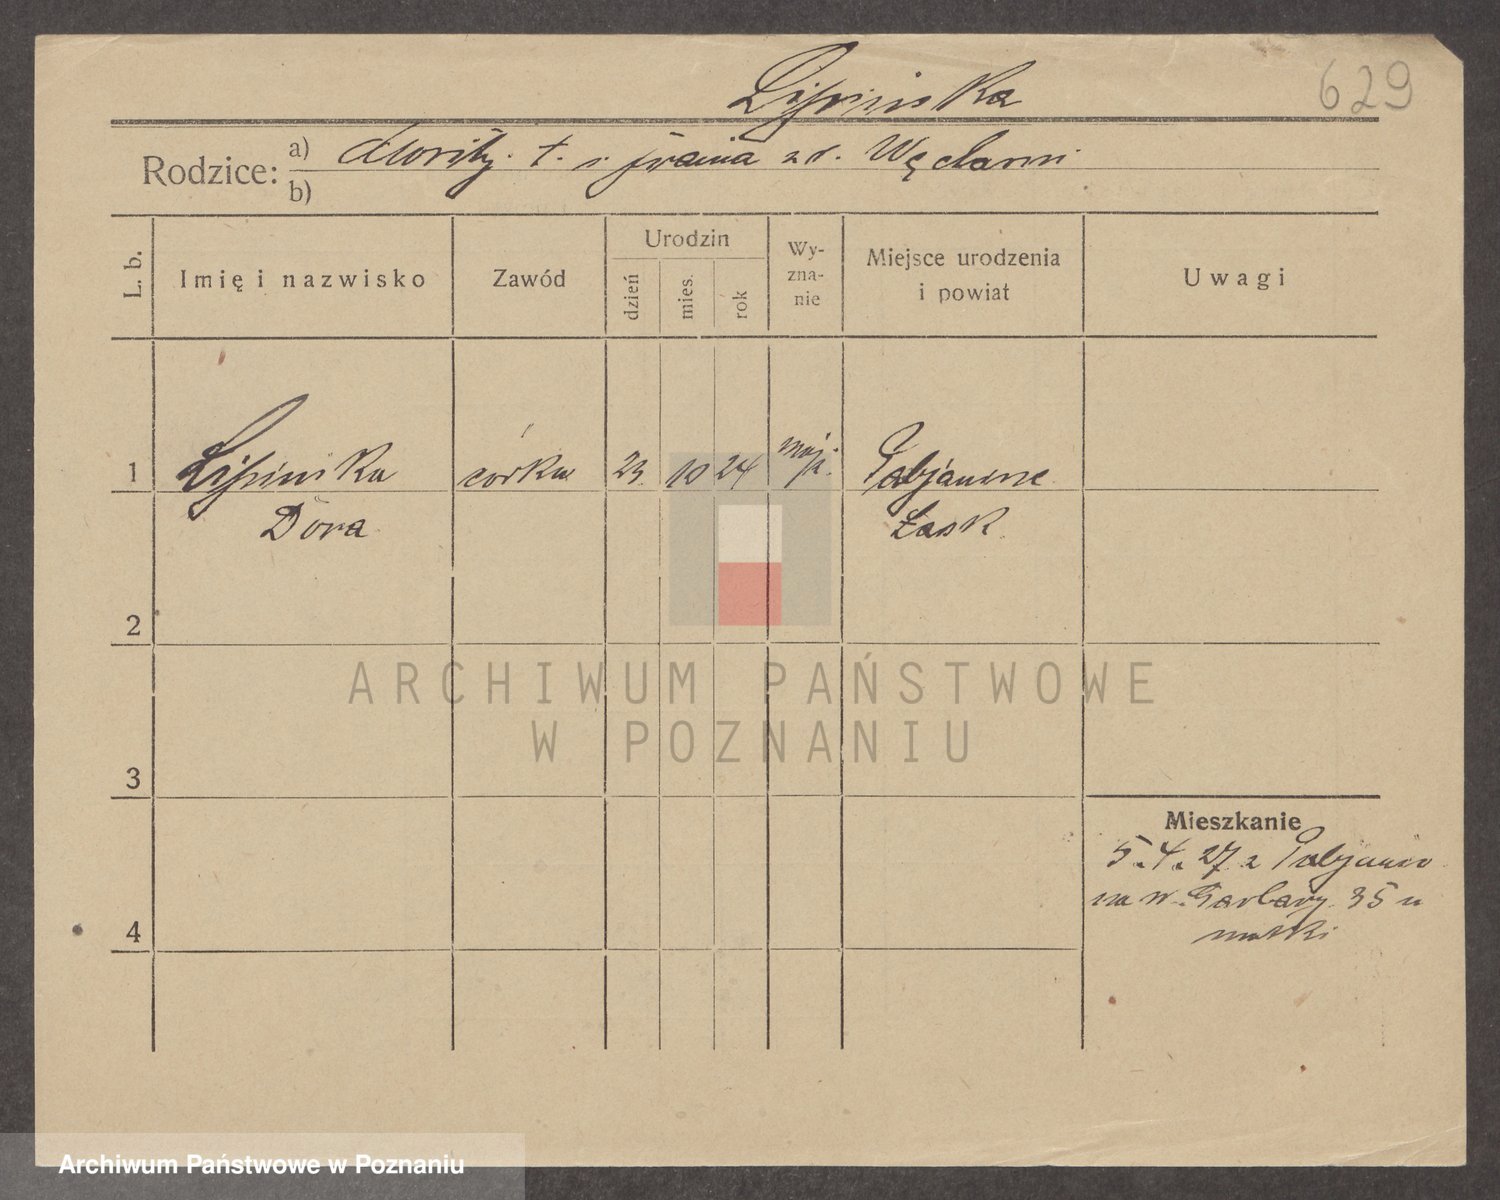 Lipińska
629
Rodzice:
a) Moritz †. i Frania z d.
b)
L. b.
Imię i nazwisko
Zawód
Urodzin
dzień
mies.
rok
Wy-
zna-
nie
Miejsce urodzenia
i powiat
Uwagi
1
Lipińska
Dora
córka
23
10
24
mojż.
Pabjanice
Łask
2
3
4
Mieszkanie
5.4.27 z Pabjanic
na W. Garbary 35 u
matki
ARCHIWUM PAŃSTWOWE
W POZNANIU
Archiwum Państwowe w Poznaniu